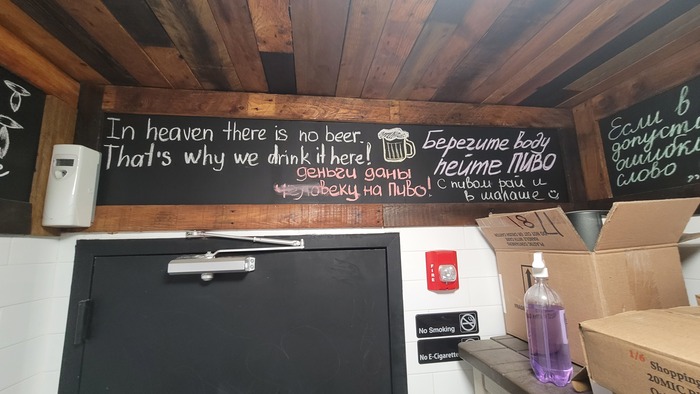 In heaven there is no beer.
That's why we drink it here!
деньги даны
человеку на пиво!
Берегите воду
пейте ПИВО
с пивом рай и
в шалаше
Если в
допусти
ошибок
слово
FIRE
No Smoking
No E-Cigarette
T8L
1/6 Shopping
20MIC